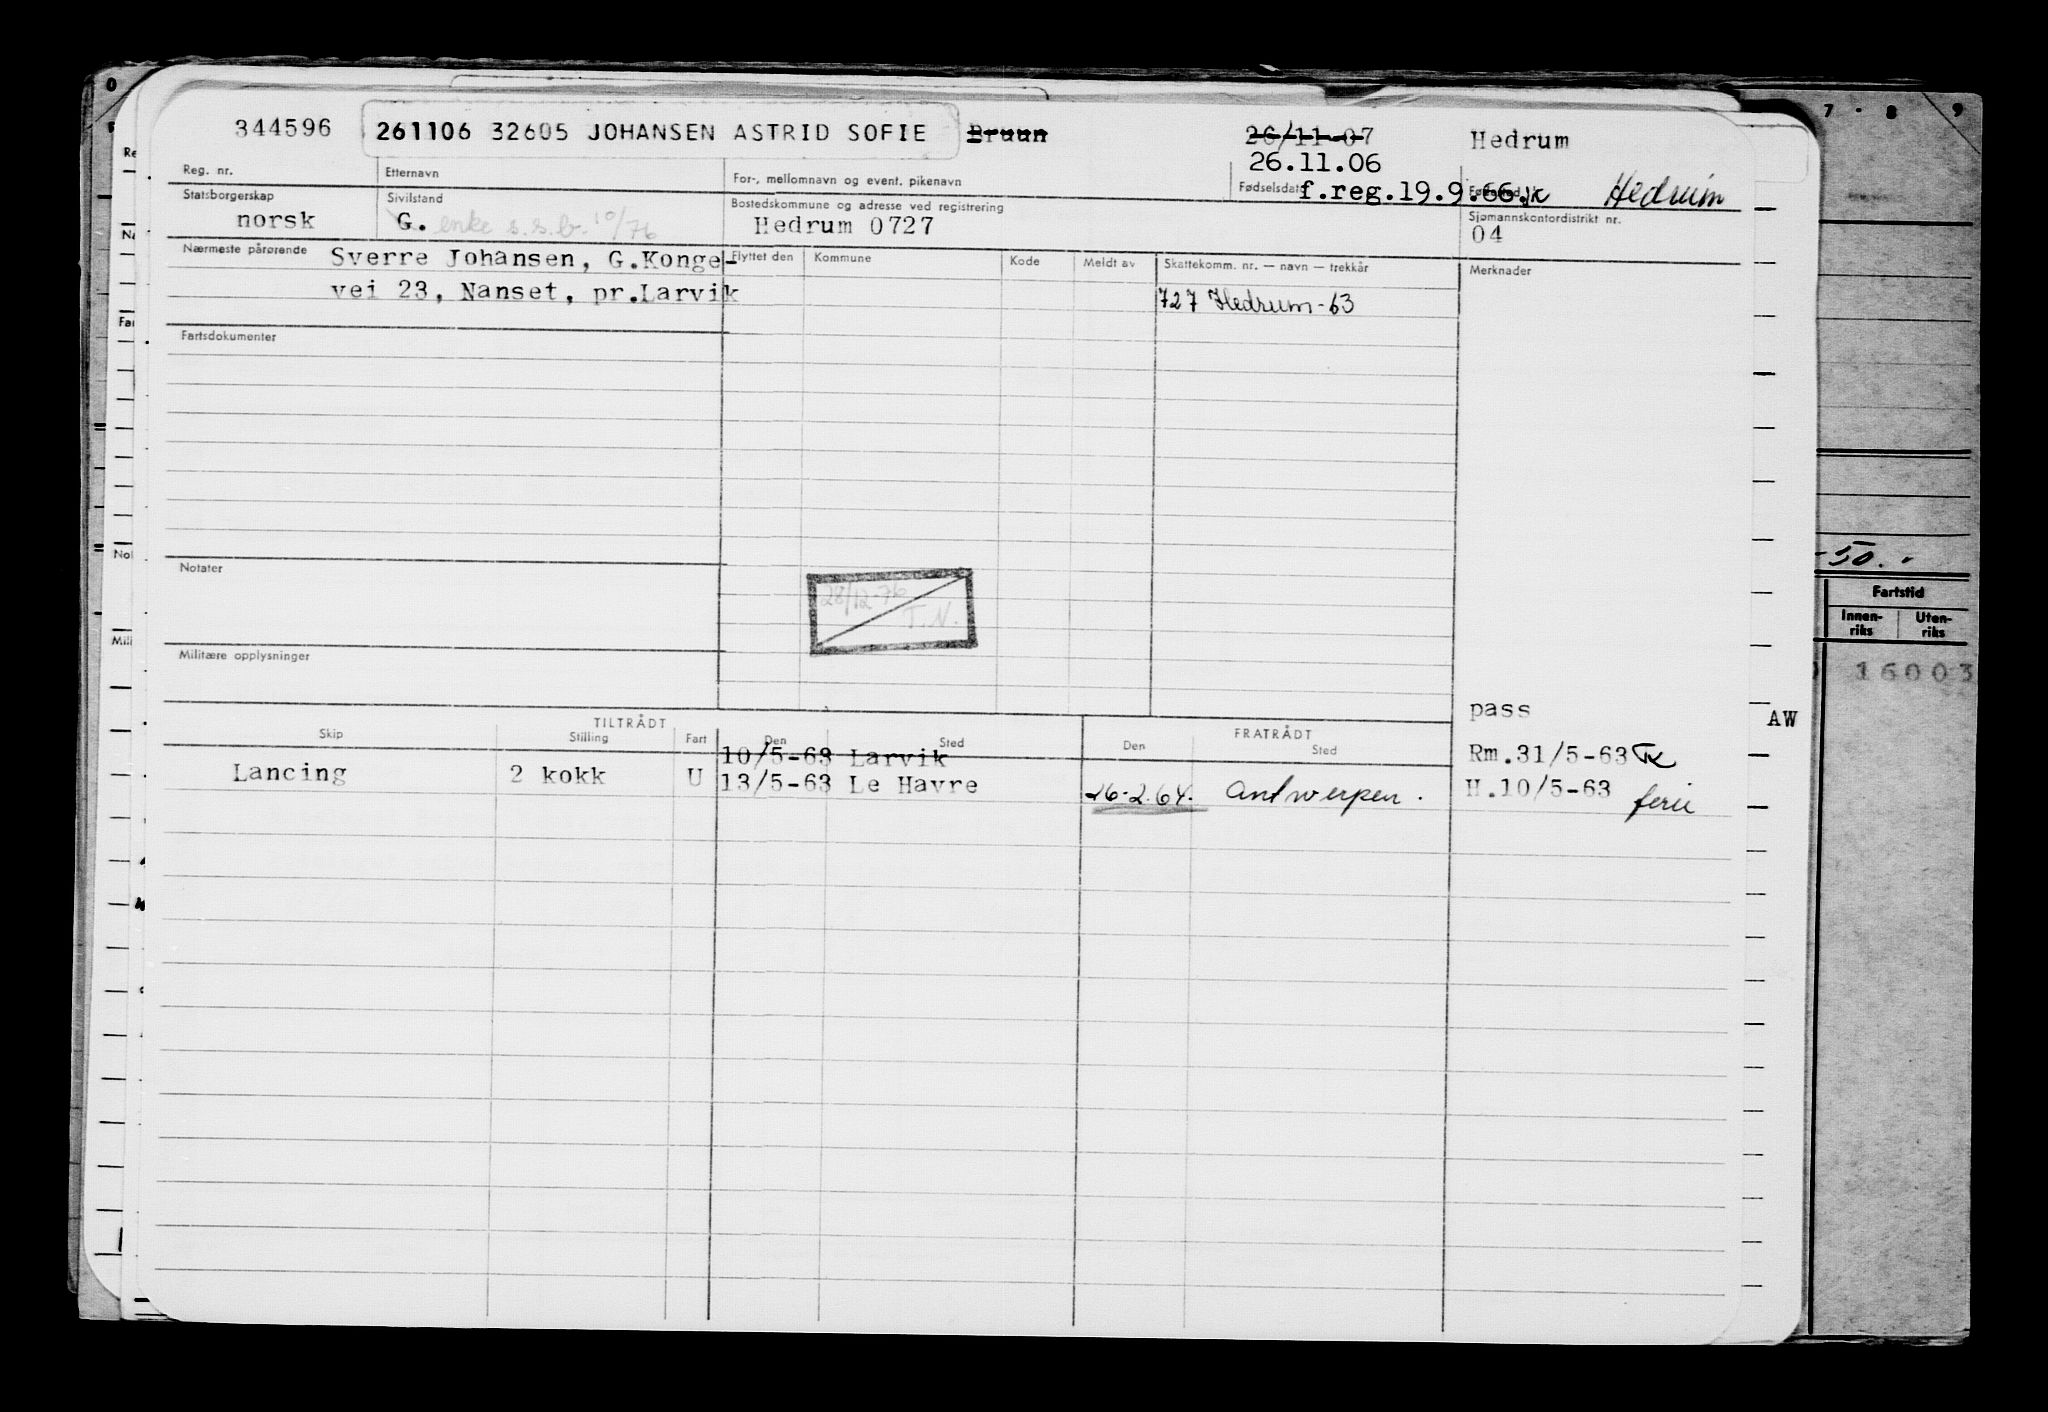 344596 261106 32605 JOHANSEN ASTRID SOFIE Bruun 26/11-07 Hedrum
26.11.06
Reg. nr. Etternavn For-, mellomnavn og event. pikenavn Fødselsdato f.reg.19.9.66. Hedrum
Statsborgerskap Sivilstand Bostedskommune og adresse ved registrering Sjømannskontordistrikt nr.
norsk G. enke s.s.b. 10/76 Hedrum 0727 04
Nærmeste pårørende Sverre Johansen, G.Konge- Flyttet den Kommune Kode Meldt av Skattekomm. nr. — navn — trekkår Merknader
vei 23, Nanset, pr.Larvik 727 Hedrum-63
Fartsdokumenter
Notater
28/12-76
T.N.
Militære opplysninger
pass
TILTRÅDT FRATRÅDT
Skip Stilling Fart Den Sted Den Sted
10/5-63 Larvik Rm.31/5-63
Lancing 2 kokk U 13/5-63 Le Havre 26-2.64. Antwerpen. H.10/5-63 ferie
AW
7 - 8 9
-50.-
Fartstid
Innen-riks Uten-riks
16003